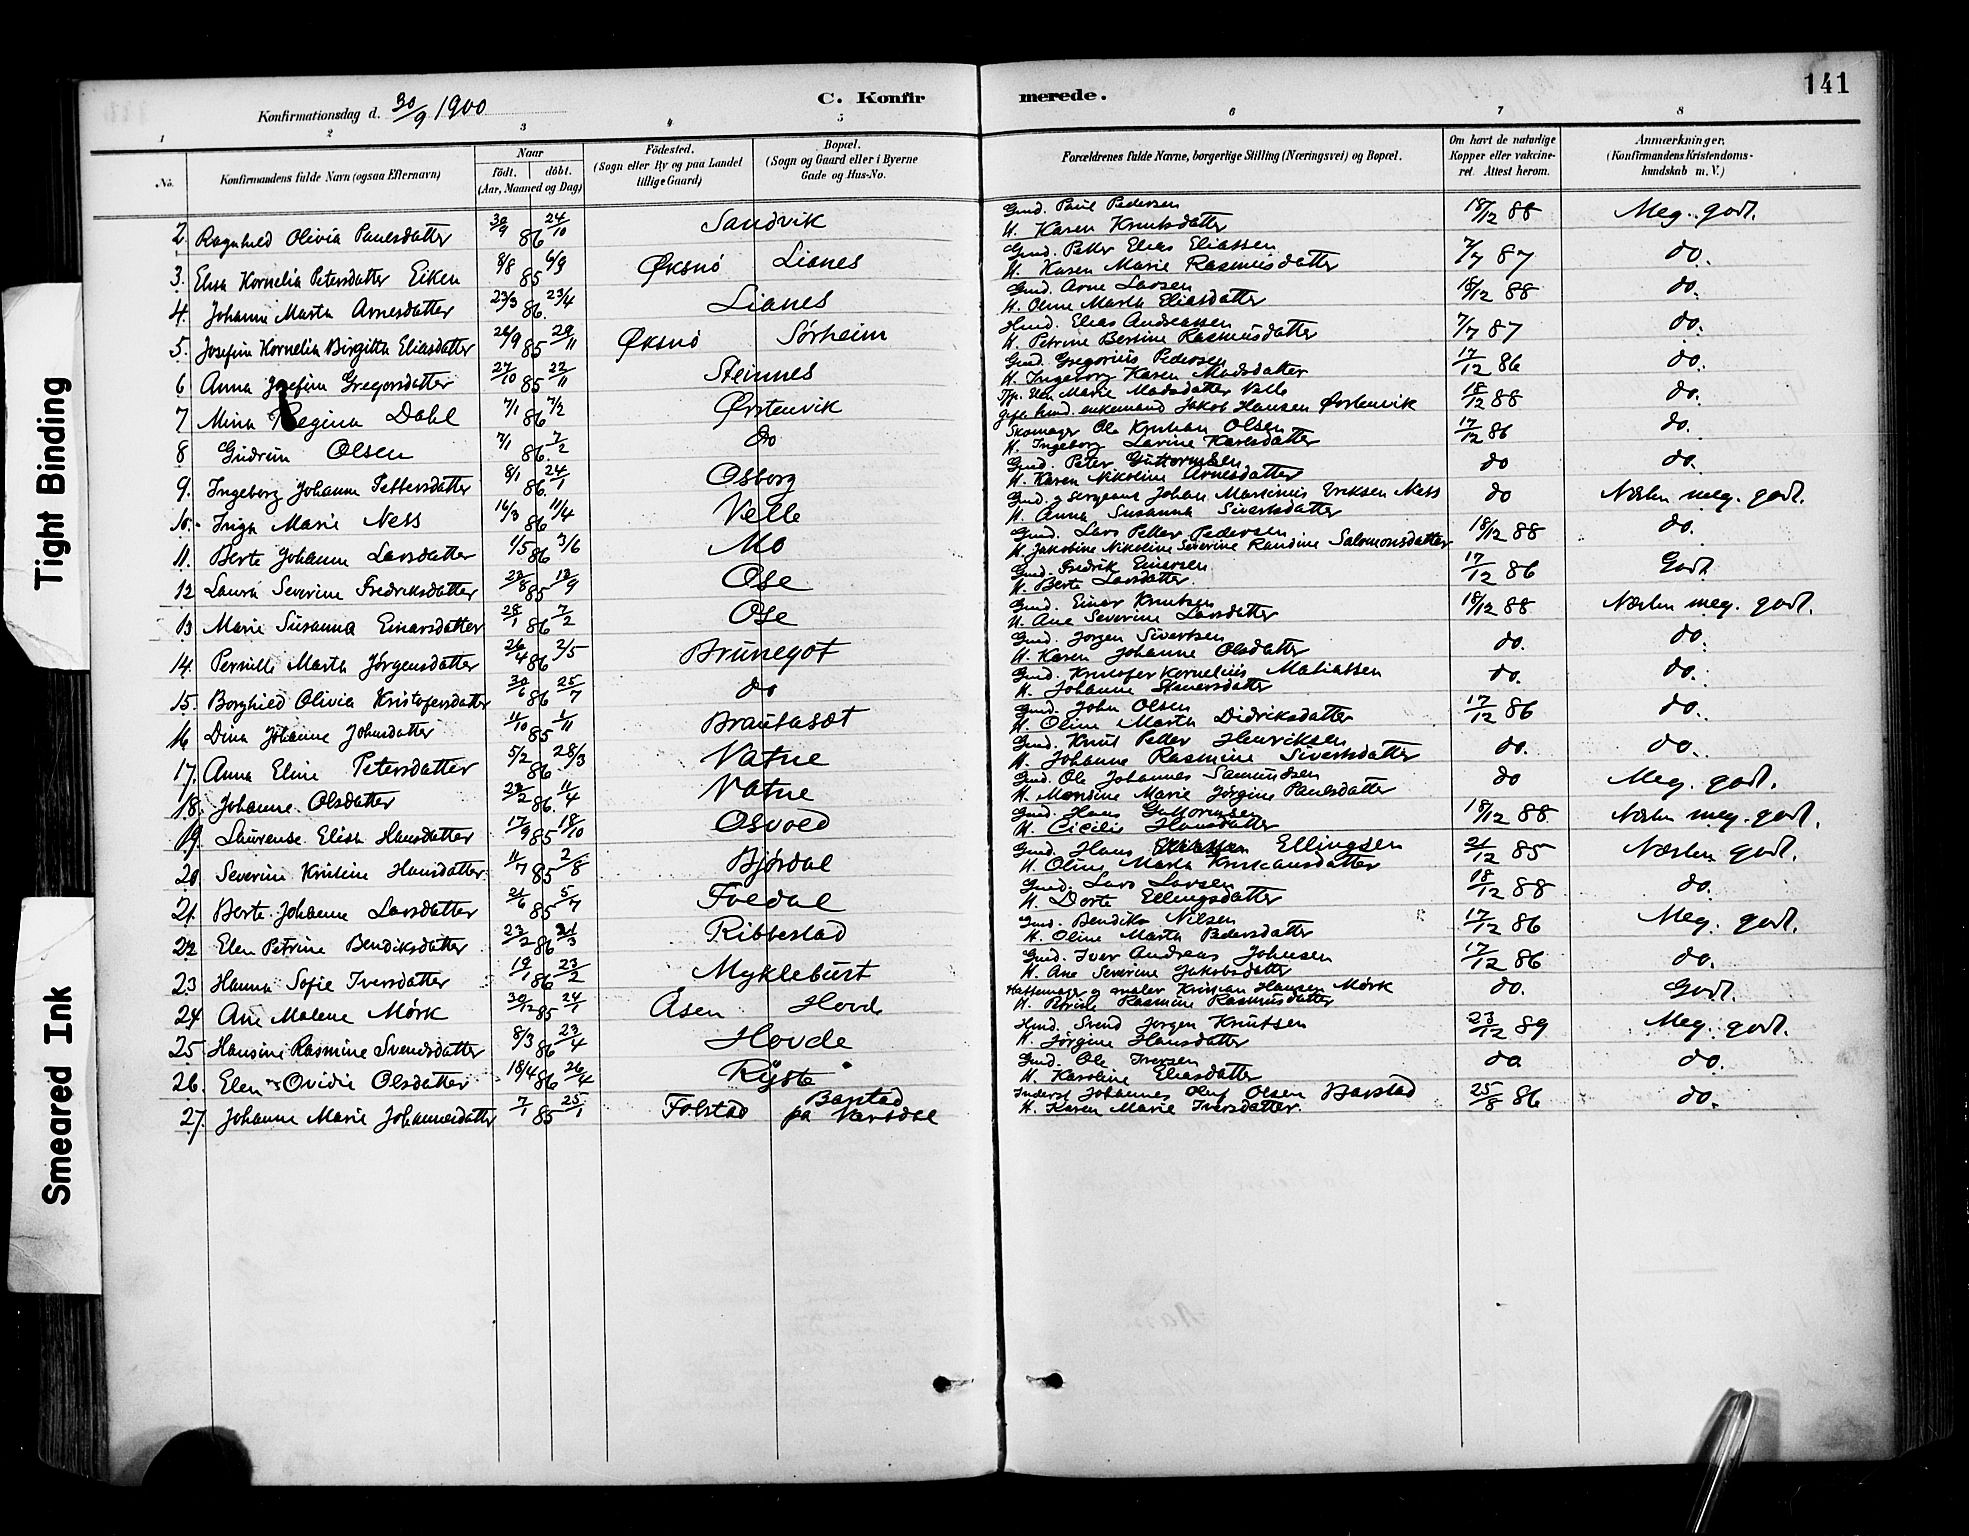 141
Konfirmationsdag d. 30/9 1900
C. Konfirmerede.
1 2 3 4 5 6 7 8
No. Konfirmandens fulde Navn (ogsaa Efternavn) Naar födt. döbt. (Aar, Maaned og Dag) Födested. (Sogn eller By og paa Landet tillige Gaard) Bopæl. (Sogn og Gaard eller i Byerne Gade og Hus-No. Forældrenes fulde Navne, borgerlige Stilling (Næringsvei) og Bopæl. Om havt de naturlige Kopper eller vakcineret. Attest herom. Anmærkninger. (Konfirmandens Kristendomskundskab m. V.)
2. Ragnhild Olivia Paulsdatter 30/9 86 24/10 Sandvik Gmd. Paul Pedersen H. Karen Knutsdatter 18/12 88 Meg. godt.
3. Elisa Kornelia Petersdatter Eiken 8/8 85 6/9 Øksnö Lianes Gmd. Petter Elias Eliassen H. Karen Marie Rasmusdatter 7/7 87 do.
4. Johanne Marta Arnesdatter 23/3 86. 23/4 Lianes Gmd. Arne Larsen H. Oline Marta Eliasdatter 18/12 88 do.
5. Josefine Kornelia Birgitta Eliasdatter 26/9 85 29/11 Øksnö Sørheim Hmd. Elias Andreassen H. Petrine Bertine Rasmusdatter 7/7 87 do.
6 Anna Josefine Gregorsdatter 27/10 85 22/11 Steinnes Gmd. Gregorius Pedersen H. Ingeborg Karen Madsdatter 17/12 86 do.
7 Mina Regina Dahl 7/1 86 7/2 Ørstenvik Marie Madsdatter Velle gift hmd. enkemand Jakob Hansen Ørstenvik 18/12 88 do.
8 Gudrun Olsen 7/1 86. 7/2 do Skomager Ole Kristian Olsen H. Ingeborg Lavine Karlsdatter 17/12 86 do.
9. Ingeborg Johanne Pettersdatter 8/1 86. 24/1 Osborg Gmd. Peter Guttormsen H. Karen Nikoline Arnesdatter do do.
10. Inga Marie Ness 16/3 86 11/4 Velle Gmd. & sergeant Johan Martinus Eriksen Ness H. Anna Susanna Sivertsdatter do Næsten meg. godt.
11. Berte Johanne Larsdatter 1/5 86 3/6 Mo Gmd. Lars Petter Pedersen H. Jakobine Nikoline Severine Randine Salomonsdatter 18/12 88 do.
12 Laura Severine Fredriksdatter 23/8 85 13/9 Ose Gmd. Fredrik Einersen H. Berte Larsdatter. 17/12 86 Godt
13 Marie Susanna Einarsdatter 28/1 86 7/2 Ose Gmd. Einar Knutsen H. Ane Severine Larsdatter 18/12 88 Næsten meg. godt.
14. Pernille Marta Jørgensdatter 26/4 86 2/5 Brunegot Gmd. Jørgen Sivertsen H. Karen Johanne Olsdatter do. do.
15. Borghild Olivia Kristofersdatter 30/6 86 25/7 do Gmd. Kristofer Kornelius Matiassen H. Johanne Steinersdatter do. do.
16 Dina Johanne Johnsdatter 11/10 85 1/11 Brautasæt Gmd. John Olsen H. Oline Marta Didriksdatter 17/12 86 do.
17. Anna Eline Petersdatter 5/2 86 28/3 Vatne Gmd. Knut Petter Henriksen H. Johanne Rasmine Sivertsdatter do. do.
18. Johanne Olsdatter 22/2 86. 11/4 Vatne Gmd. Ole Johannes Samundsen H. Monsine Marie Jørgine Paulsdatter do Meg. godt.
19. Laurense Elisa Hansdatter 17/9 85 18/10 Osvold Gmd. Hans Guttormsen H. Cicilie Hansdatter 18/12 88 Næsten meg. godt.
20 Severine Kristine Hansdatter. 11/7 85 2/8 Bjørdal Gmd. Hans Ellingsen H. Oline Marta Kristiansdatter 21/12 85 Næsten godt.
21. Berte Johanne Larsdatter 21/6 85 5/7 Foldal Gmd. Lars Larsen H. Dorte Ellingsdatter 18/12 88 do.
22 Elen Petrine Bendiksdatter 23/2 86 21/3 Ribbestad Gmd. Bendikt Nilsen H. Oline Marta Pedersdatter 17/12 86 Meg. godt.
23 Hanna Sofie Iversdatter 19/1 86 23/2 Myklebust Gmd. Iver Andreas Johnsen H. Ane Severine Jakobsdatter 17/12 86 do.
24 Ane Malene Mørk 30/12 85 24/1 Åsen Hovde Hattemager & maler Kristian Hansen Mørk H. Rasmine Rasmusdatter do. Godt.
25 Hansine Rasmine Svendsdatter 8/3 86 23/4 Hovde Hmd. Svend Jørgen Knutsen H. Jørgine Hansdatter 23/12 89 Meg. godt.
26. Elen Ovidie Olsdatter 18/4 86 26/4 Ryste Gmd. Ole Iversen H. Karoline Eliasdatter do do.
27. Johanne Marie Johannesdatter 7/1 85 25/1 Folstad Barstad på Vartdal Inderst Johannes Oluf Olsen Barstad H. Karen Marie Iversdatter. 25/8 86 do.
Tight Binding
Smeared Ink